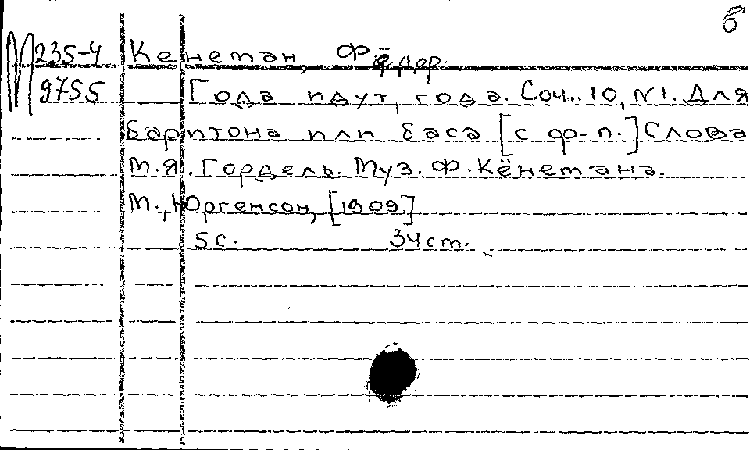 б
М 235-4 Кенеман, Фёдор.
9755 Года идут, года. Соч. 10, N1. Для
баритона или баса [с ф-п.] Слова
М.Я. Гордель. Муз. Ф. Кёнемана.
М., Юргенсон, [1909]
5 с. 34 cm.